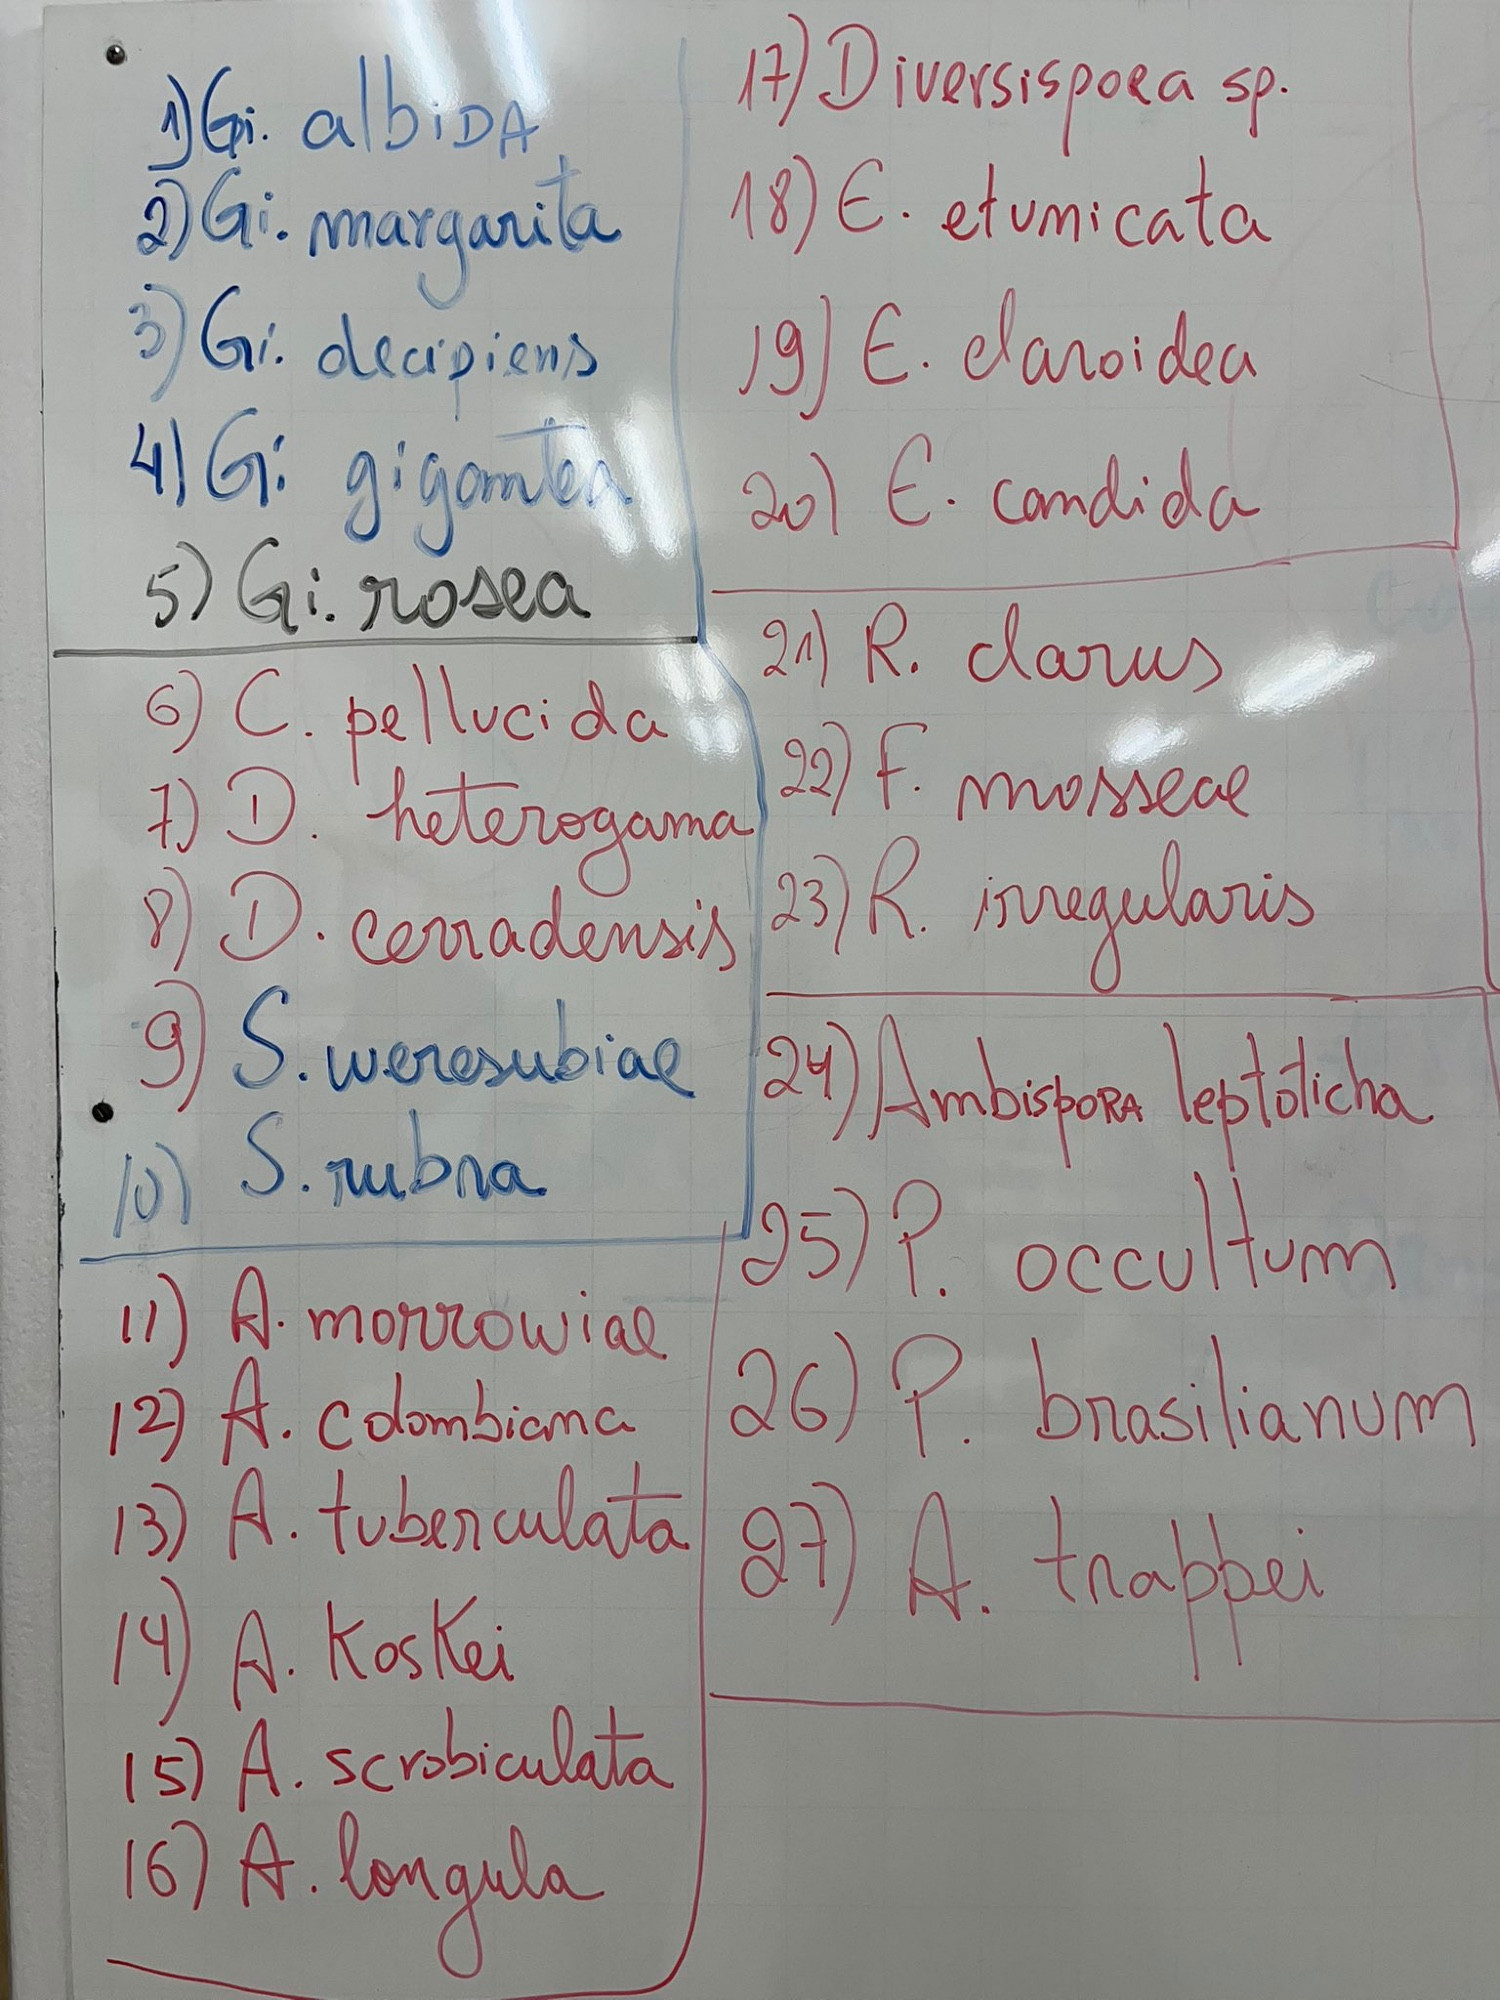 1) Gi. albiDA
2) Gi. margarita
3) Gi. decipiens
4) Gi gigantea
5) Gi. rosea
6) C. pellucida
7) D. heterogama
8) D. cerradensis
9) S. weresubiae
10) S. rubra
11) A. morrowiae
12) A. colombiana
13) A. tuberculata
14) A. Koskei
15) A. scrobiculata
16) A. longula
17) Diversispora sp.
18) E. etunicata
19) E. claroidea
20) E. candida
21) R. clarus
22) F. mosseae
23) R. irregularis
24) AmbispORA leptoticha
25) P. occultum
26) P. brasilianum
27) A. trappei